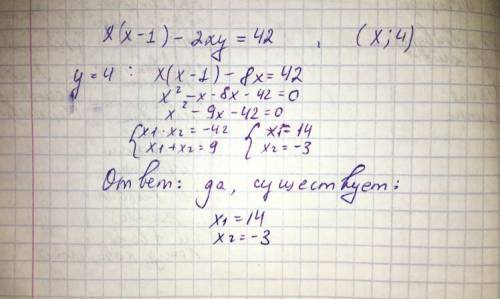 x(x-1) - 2xy = 42 , (x; 4)
y = 4 : x(x-1) - 8x = 42
x² - x - 8x - 42 = 0
x² - 9x - 42 = 0
{ x1 · x2 = -42 { x1 = 14
{ x1 + x2 = 9 { x2 = -3
Ответ: да, существует:
x1 = 14
x2 = -3